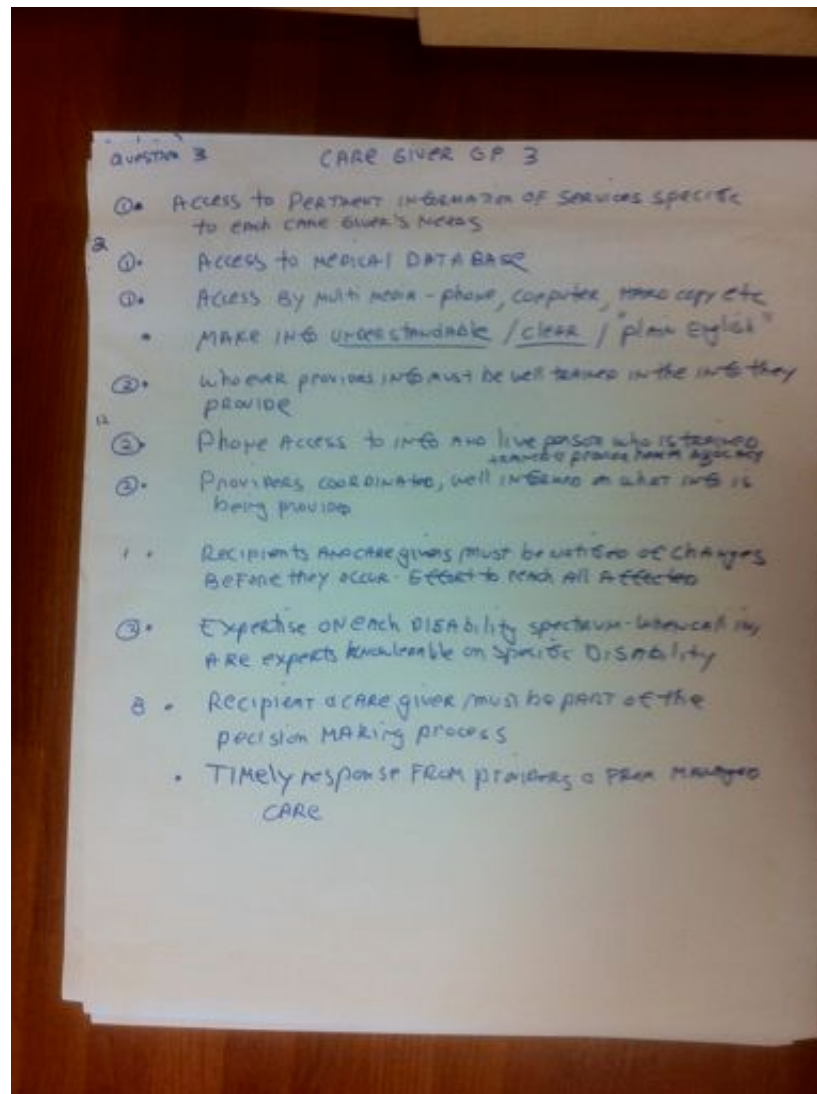 QUESTION 3 CARE GIVER GP 3
①• ACCESS to PERTINENT INFORMATION OF SERVICES SPECIFIC
to each CARE GIVER'S NEEDS
2
①• ACCESS to MEDICAL DATABASE
①• Access By multi media - phone, computer, HARD copy etc
• MAKE INFO UNDERSTANDABLE / CLEAR / "plain English"
②• whoever provides INFO must be well TRAINED in the info they
PROVIDE
12
②• Phone Access to INFO AND live person who is TRAINED
from agency
②• PROVIDERS COORDINATED, well INFORMED on what info is
being provided
1 • RECIPIENTS AND CARE givers must be notified of changes
BEFORE they occur. Effort to reach All Affected
③• Expertise ON each DISABILITY spectrum - when call in,
ARE experts knowledgeable on specific DISABILITY
8 • Recipient & CARE giver must be PART of the
decision MAKING process
• TIMELY response FROM providers & FROM MANAGED
CARE